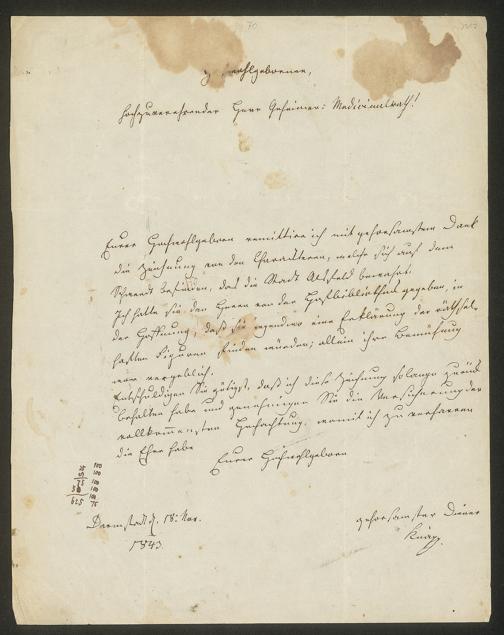 Hochwohlgeborner,
Hochzuverehrender Herr Geheimer Medicinalrath!
Eurer Hochwohlgeboren remittire ich mit gehorsamstem Dank
die Zeichnung von den Charakteren, welche sich auf dem
Schwerdt befinden, das die Stadt Alsfeld bewahrt.
Ich hatte sie den Herren von der Hofbibliothek gegeben, in
der Hoffnung, daß sie irgendwo eine Erklärung der räthsel-
haften Figuren finden würden; allein ihre Bemühung
war vergeblich.
Entschuldigen Sie gütigst, daß ich diese Zeichnung so lange zurück
behalten habe und genehmigen Sie die Versicherung der
vollkommensten Hochachtung, womit ich zu verharren
die Ehre habe
Eurer Hochwohlgeboren
Darmstadt d. 18. Nov.
1843.
gehorsamster Diener
Knapp.
625